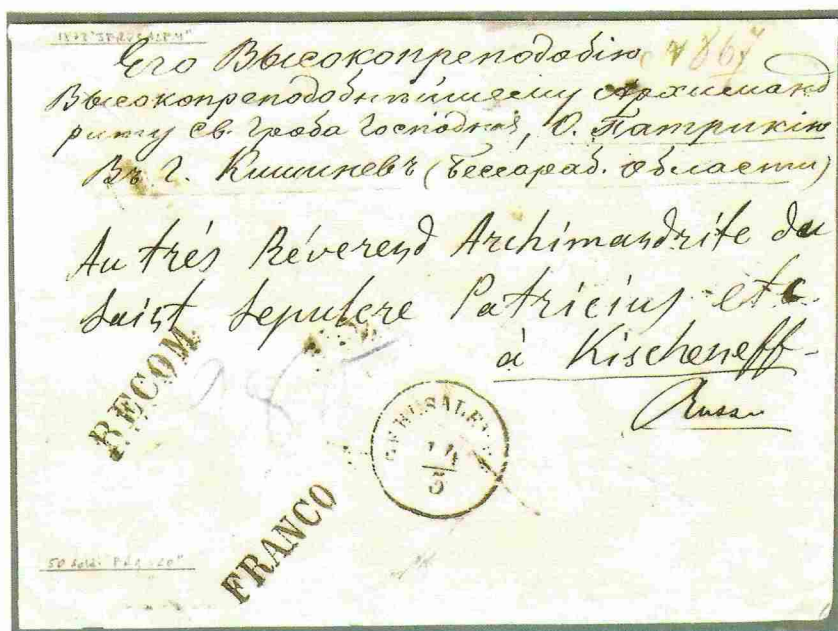 "JERUSALEM"
Его Высокопреподобію
Высокопреподобнѣйшему Архиманд
риту Св. Гроба Господня, О. Патрикію
Въ г. Кишиневъ (Бессараб. Области)
Au trés Révérend Archimandrite du
Saint Sepulcre Patricius etc
à Kischeneff
Russie
RECOM
JERUSALEM
14
5
FRANCO